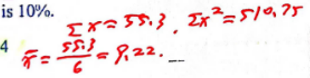 is 10%.
Σx = 55.3, Σx² = 510.75
4
x̄ = 55.3/6 = 9.22.